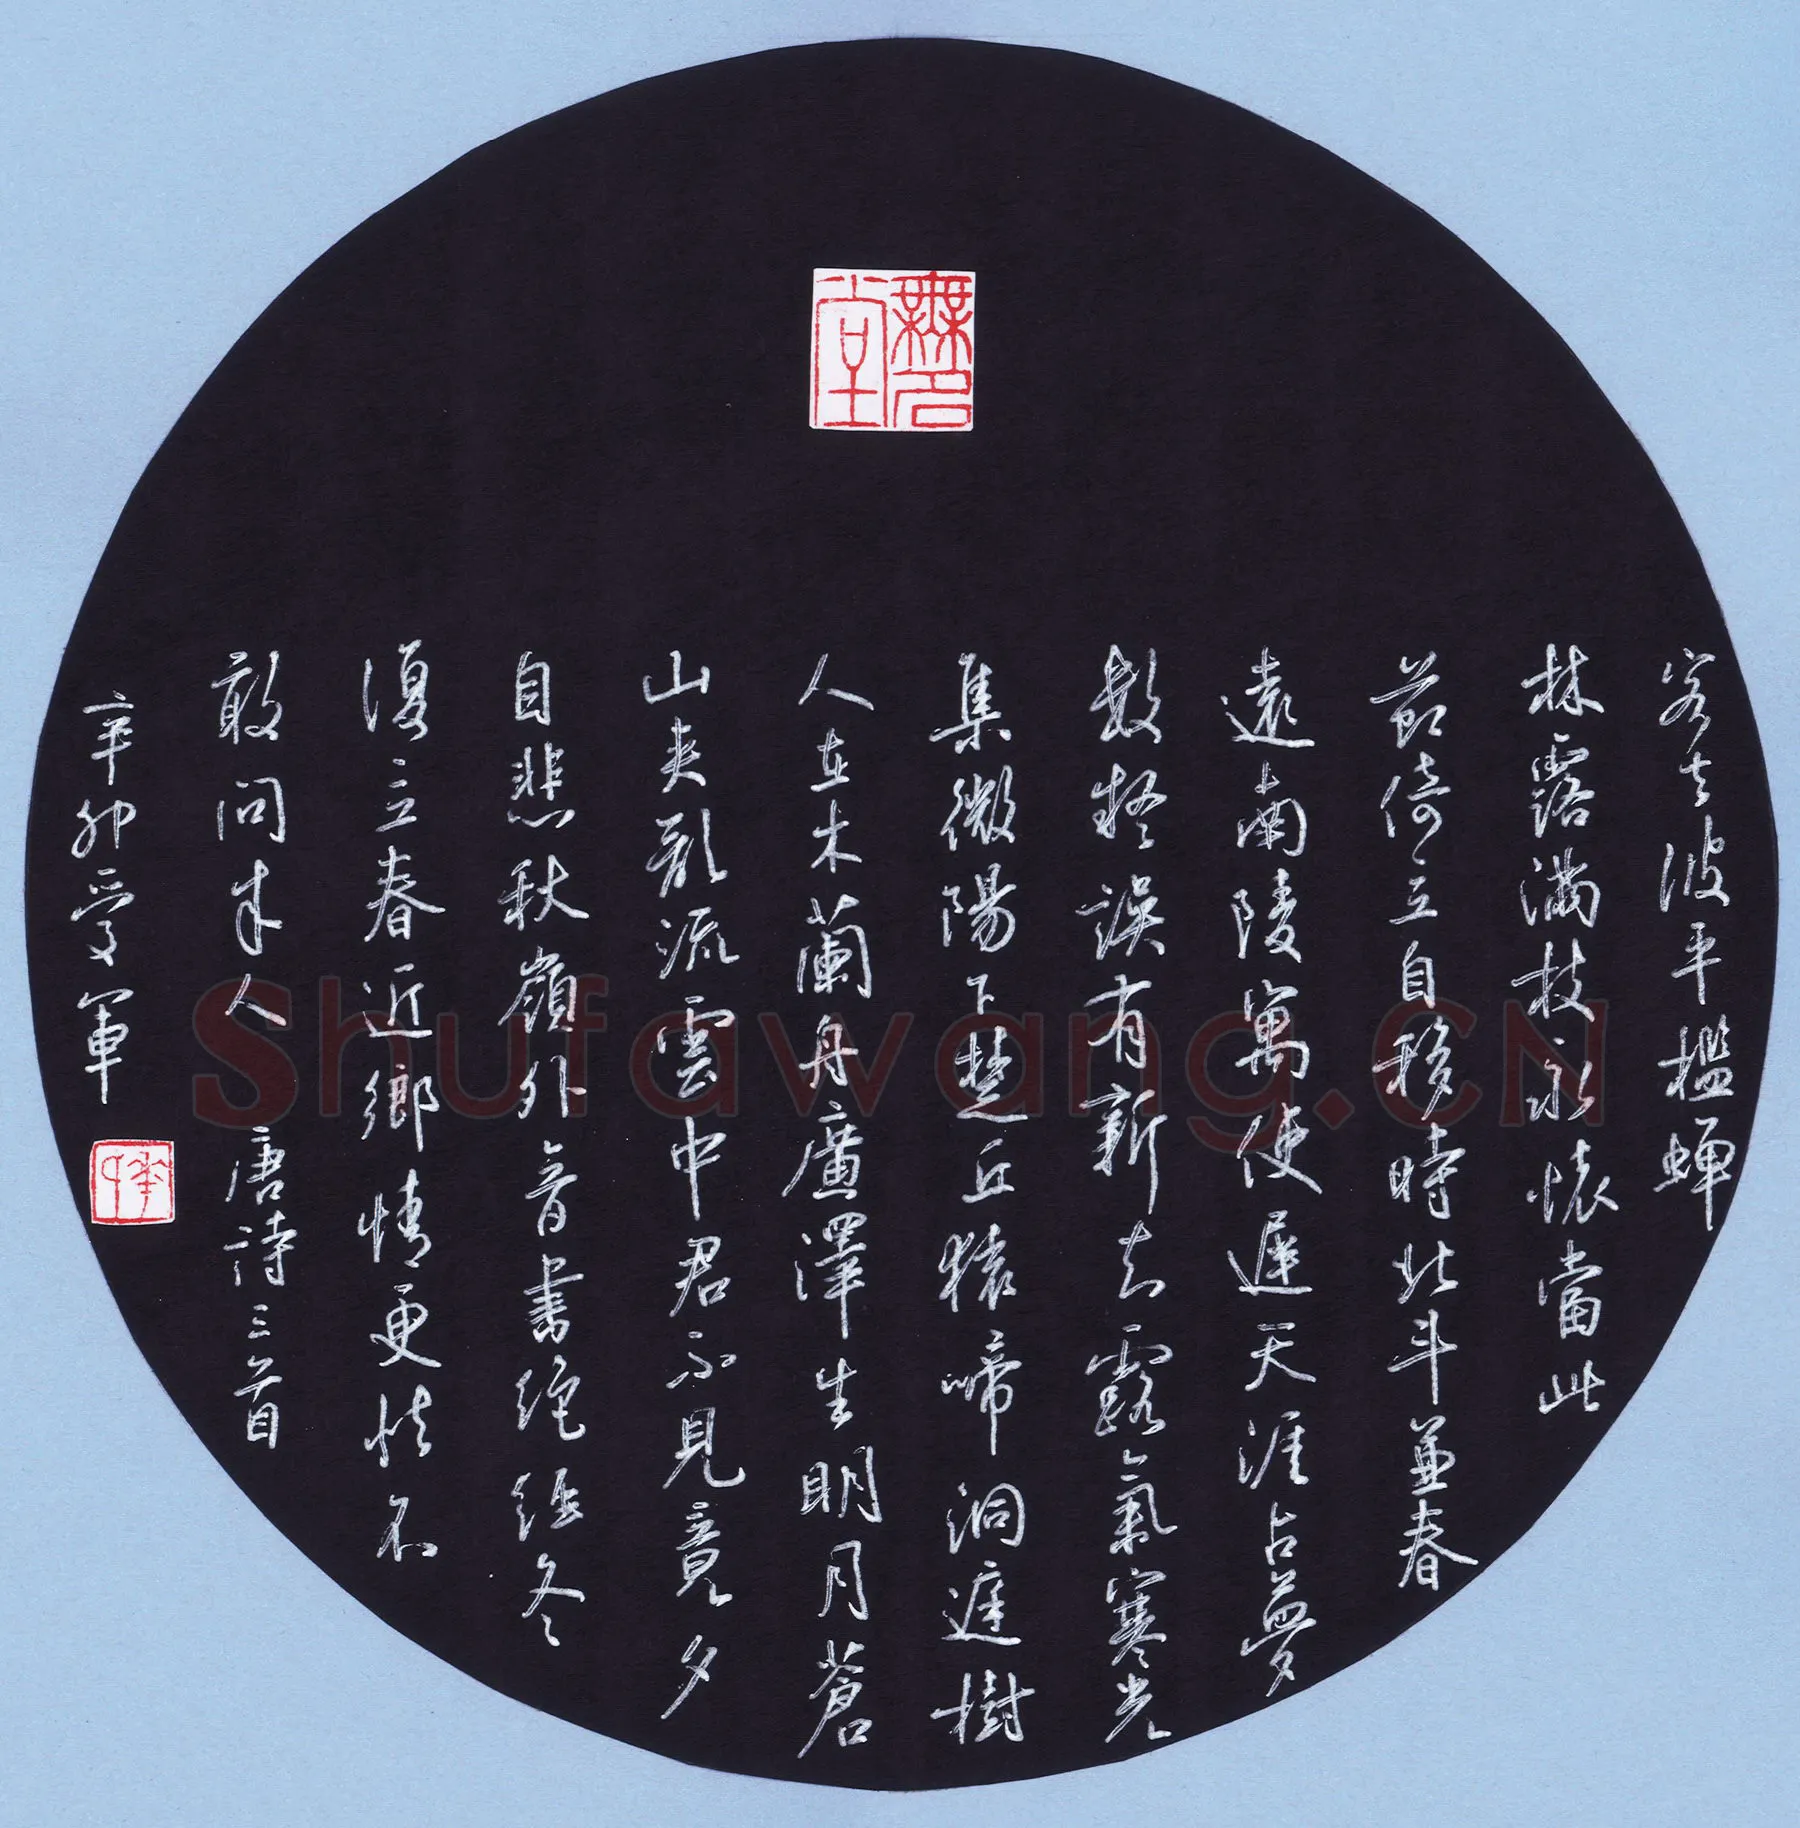 無名堂
客去波平檻蟬
休露滿枝永懷當此
節倚立自移時北斗兼春
遠南陵寓使遲天涯占夢
數疑誤有新知露氣寒光
集微陽下楚丘猿啼洞庭樹
人在木蘭舟廣澤生明月蒼
山夾亂流雲中君不見竟夕
自悲秋嶺外音書絕經冬
復立春近鄉情更怯不
敢問来人 唐詩三首
辛卯軍
Shufawang.CN